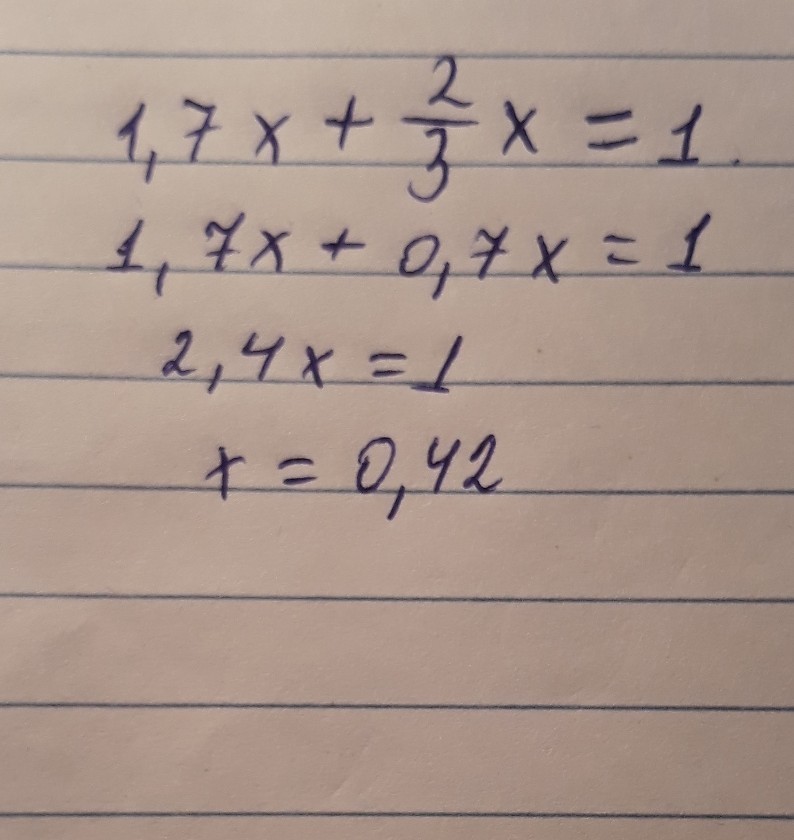 1,7x + 2/3 x = 1.
1,7x + 0,7x = 1
2,4x = 1
x = 0,42